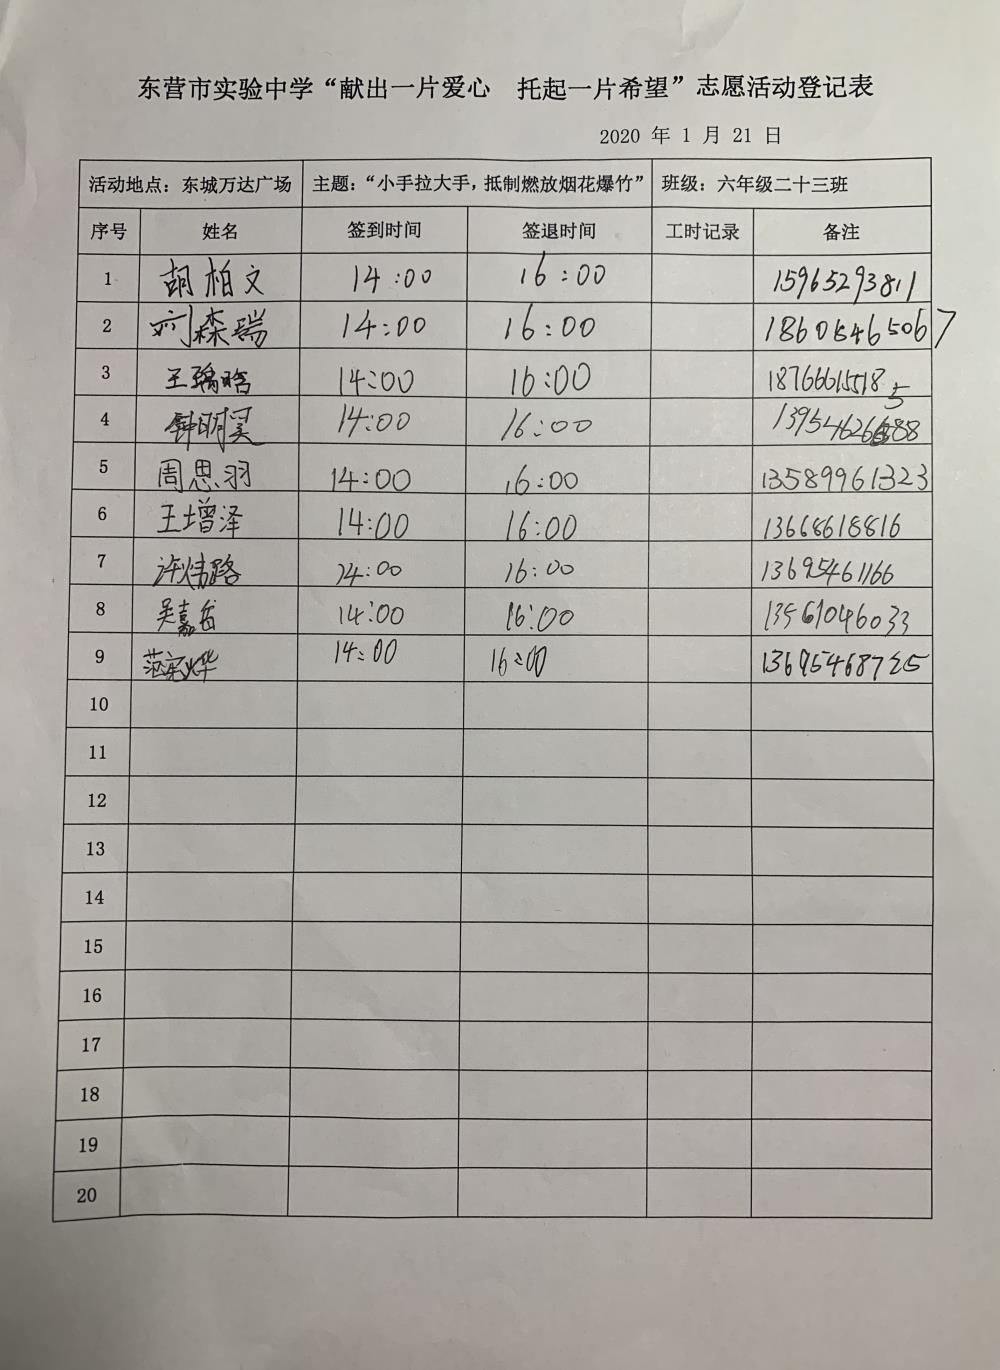 东营市实验中学“献出一片爱心 托起一片希望”志愿活动登记表
2020 年 1 月 21 日
活动地点：东城万达广场 主题：“小手拉大手，抵制燃放烟花爆竹” 班级：六年级二十三班
序号 姓名 签到时间 签退时间 工时记录 备注
1 胡柏文 14:00 16:00 15965293811
2 刘森瑞 14:00 16:00 18605465067
3 王瑀晗 14:00 16:00
4 钟明昊 14:00 16:00
5 周思羽 14:00 16:00 13589961323
6 王增泽 14:00 16:00 13668618816
7 许炜路 14:00 16:00 13695461166
8 吴嘉岳 14:00 16:00 13561046033
9 范 烨 14:00 16:00 13695468725
10
11
12
13
14
15
16
17
18
19
20